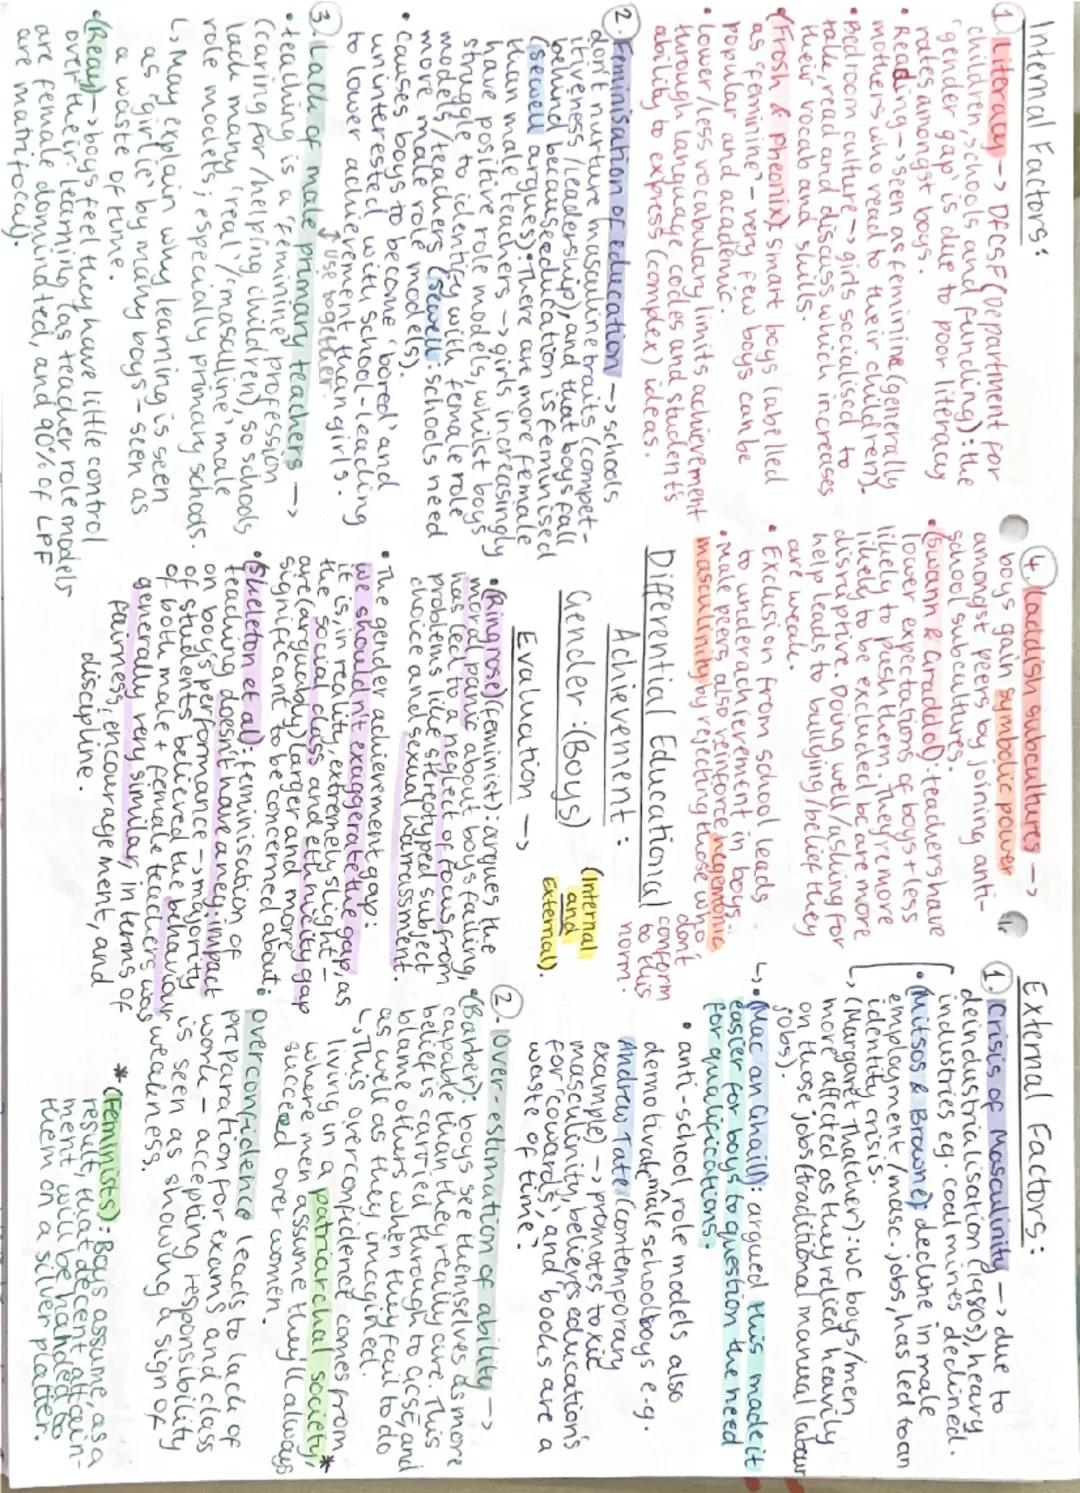 Internal Factors:
1. Literacy -> DFCSF (Department for
children, schools and funding): the
'gender gap' is due to poor literacy
rates amongst boys.
• Reading -> seen as feminine (generally
mothers who read to their children).
• Bedroom culture -> girls socialised to
talk, read and discuss which increases
their vocab and skills.
• (Frosh & Pheonix) smart boys labelled
as 'feminine' - very few boys can be
popular and academic.
• Lower/less vocabulary limits achievement
through language codes and student's
ability to express (complex) ideas.
2. Feminisation of education -> schools
don't nurture masculine traits (compet-
itiveness/leadership), and that boys fall
behind because education is feminised
(Sewell argues). There are more female
than male teachers -> girls increasingly
have positive role models, whilst boys
struggle to identify with female role
models/teachers (Sewell: schools need
more male role models).
• Causes boys to become 'bored' and
uninterested with school - leading
to lower achievement than girls.
↕ use together
3. Lack of male primary teachers ->
• teaching is a 'feminine' profession
(caring for/helping children), so schools
lack many 'real'/'masculine' male
role models; especially primary schools.
↳ May explain why learning is seen
as 'girlie' by many boys - seen as
a waste of time.
• (Reay) -> boys feel they have little control
over their learning (as teacher role models
are female dominated, and 90% of LPF
are matrifocal).
4. Laddish subcultures ->
• boys gain symbolic power
amongst peers by joining anti-
school subcultures.
• (Swann & Graddol): teachers have
lower expectations of boys + less
likely to push them. They're more
likely to be excluded be are more
disruptive. Doing well/asking for
help leads to bullying/belief they
are weak.
• Exclusion from school leads
to underachievement in boys.
• Male peers also reinforce hegemonic
masculinity by rejecting those who
don't
conform
to this
norm.
Differential Educational
Achievement:
Gender: (Boys)
(internal
and
external).
Evaluation ->
• (Ringrose) (feminist): argues the
moral panic about boys failing,
has led to a neglect of focus from
problems like stereotyped subject
choice and sexual harrassment.
• The gender achievement gap:
we shouldn't exaggerate the gap, as
it is, in reality, extremely slight -
the social class and ethnicity gap
are (arguably) larger and more
significant to be concerned about.
• (Skeleton et al): feminisation of
teaching doesn't have a neg. impact
on boy's performance -> majority
of students believed the behaviour
of both male + female teachers was
generally very similar, in terms of
fairness, encouragement, and
discipline.
External Factors:
1. Crisis of Masculinity -> due to
deindustrialisation (1980s), heavy
industries eg. coal mines declined.
• (Mitsos & Browne) decline in male
employment/masc. jobs, has led to an
identity crisis.
↳ (Margaret Thatcher): WC boys/men
more affected as they relied heavily
on those jobs (traditional manual labour
jobs).
↳ • (Mac an Ghaill): argued this made it
easier for boys to question the need
for qualifications.
• anti-school role models also
demotivate male schoolboys e.g.
Andrew Tate (contemporary
example) -> promotes toxic
masculinity, believes education's
for 'cowards', and books are a
waste of time'.
2. Over-estimation of ability ->
• (Barber): boys see themselves as more
capable than they really are. This
belief is carried through to GCSE, and
blame others when they fail to do
as well as they imagined.
↳ This overconfidence comes from
living in a patriarchal society, *
where men assume they'll always
succeed over women.
• overconfidence leads to lack of
preparation for exams and class
work - accepting responsibility
is seen as showing a sign of
weakness.
* (Feminists): Boys assume, as a
result, that decent attain-
ment, will be handed to
them on a silver platter.